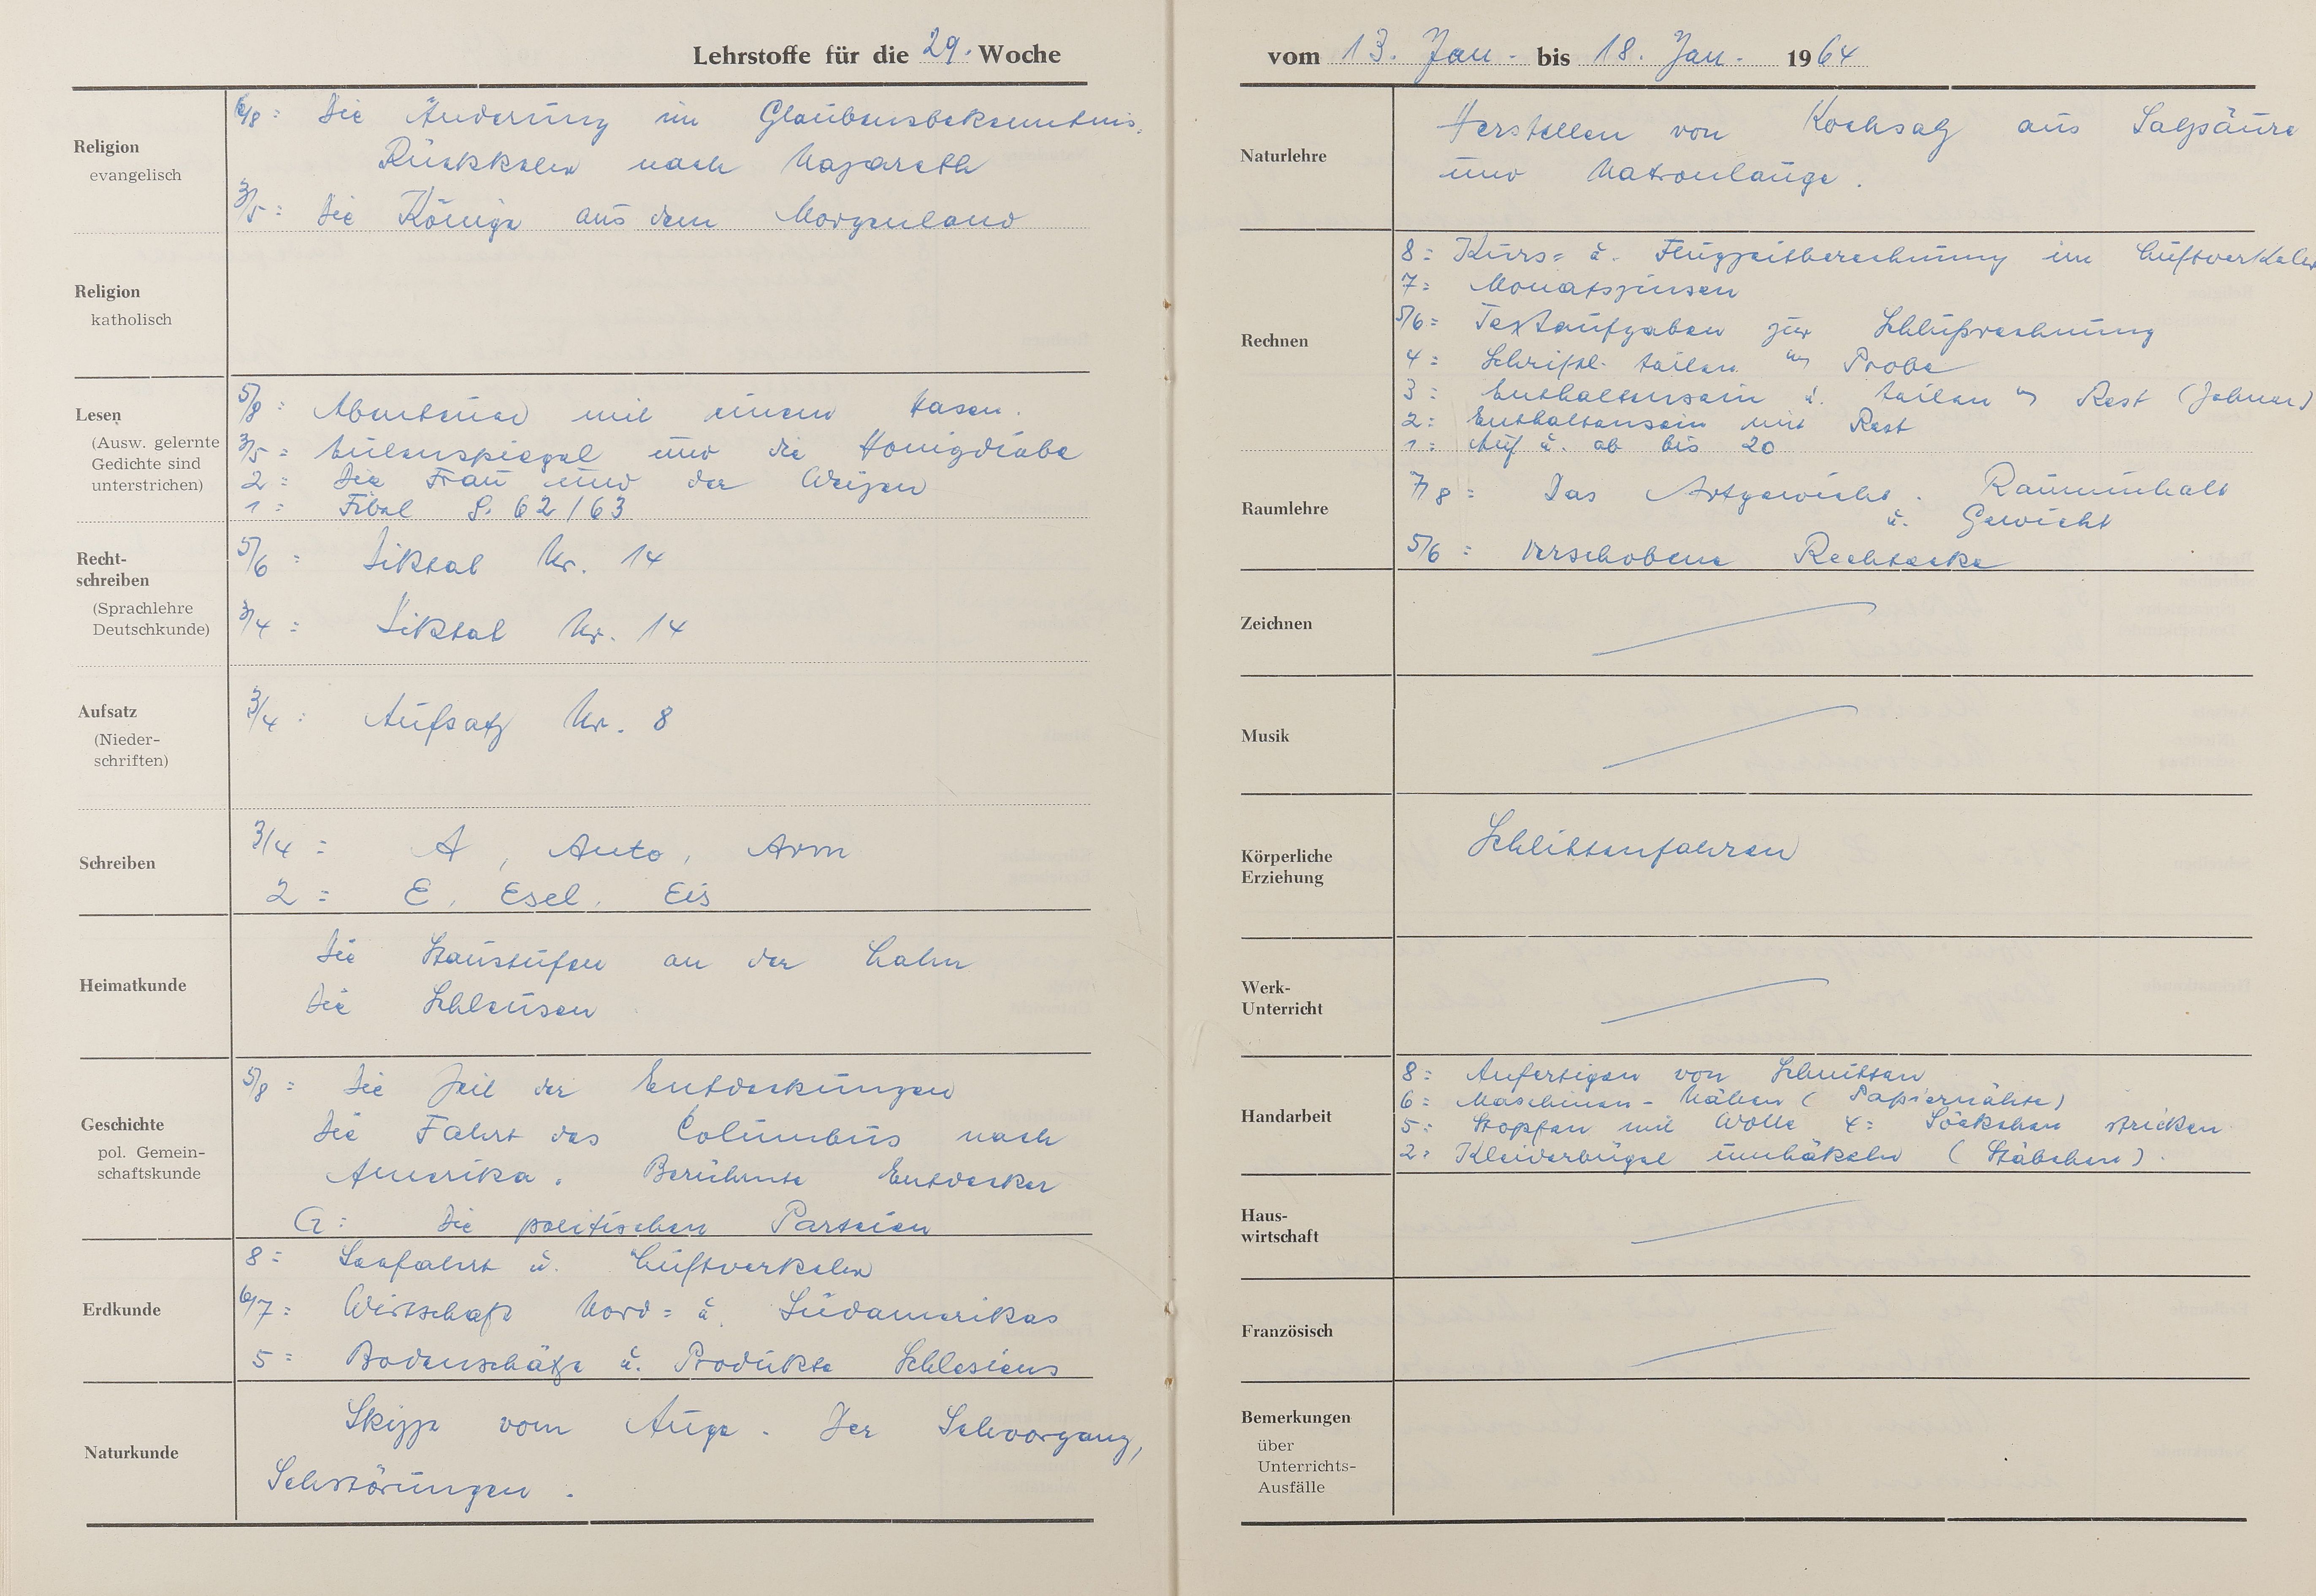 Lehrstoffe für die 29. Woche
Religion
evangelisch
6/8 = Die Änderung im Glaubensbekenntnis.
Rückkehr nach Nazareth
3/5 = Die Könige aus dem Morgenland
Religion
katholisch
Lesen
(Ausw. gelernte
Gedichte sind
unterstrichen)
5/8 = Abenteuer mit einem Hasen.
3/5 = Eulenspiegel und die Honigdiebe
2 = Die Frau und der Weizen
1 = Fibel S. 62/63
Recht-
schreiben
(Sprachlehre
Deutschkunde)
5/6 = Diktat Nr. 14
3/4 = Diktat Nr. 14
Aufsatz
(Nieder-
schriften)
3/4 = Aufsatz Nr. 8
Schreiben
3/4 = A, Auto, Arm
2 = E, Esel, Eis
Heimatkunde
Die Staustufen an der Lahn
Die Schleusen
Geschichte
pol. Gemein-
schaftskunde
5/8 = Die Zeit der Entdeckungen
Die Fahrt des Columbus nach
Amerika. Berühmte Entdecker
G: Die politischen Parteien
Erdkunde
8 = Seefahrt u. Luftverkehr
6/7 = Wirtschaft Nord= u. Südamerikas
5 = Bodenschätze u. Produkte Schlesiens
Naturkunde
Skizze vom Auge. Der Sehvorgang,
Sehstörungen.
vom 13. Jan. bis 18. Jan. 1964
Naturlehre
Herstellen von Kochsalz aus Salzsäure
und Natronlauge.
Rechnen
8 = Kurs= u. Flugzeitberechnung im Luftverkehr
7 = Monatszinsen
5/6 = Textaufgaben zur Schlußrechnung
4 = Schriftl. teilen Probe
3 = Enthaltensein u. teilen Rest
2 = Enthaltensein mit Rest
1 = Auf u. ab bis 20
Raumlehre
7/8 = Das Artgewicht. Rauminhalt
u. Gewicht
5/6 = Verschobene Rechtecke
Zeichnen
Musik
Körperliche
Erziehung
Schlittenfahren
Werk-
Unterricht
Handarbeit
8 = Anfertigen von Schnitten
6 = Maschinen-Nähen (Papiernähte)
5 = Stopfen mit Wolle 4 = Söckchen stricken
2 = Kleiderbügel umhäkeln (Stäbchen).
Haus-
wirtschaft
Französisch
Bemerkungen
über
Unterrichts-
Ausfälle